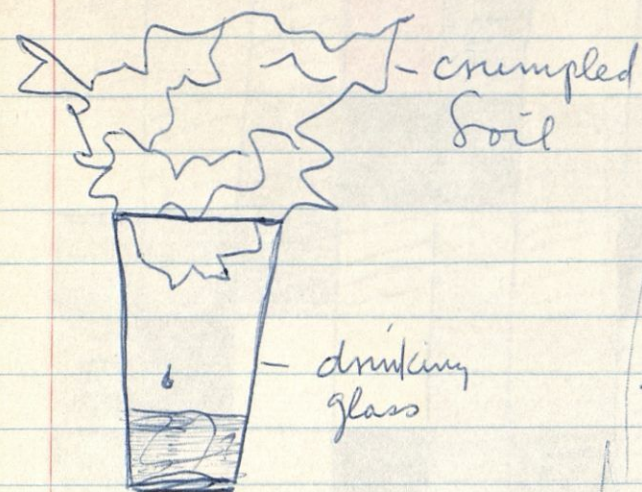 crumpled
foil
drinking
glass